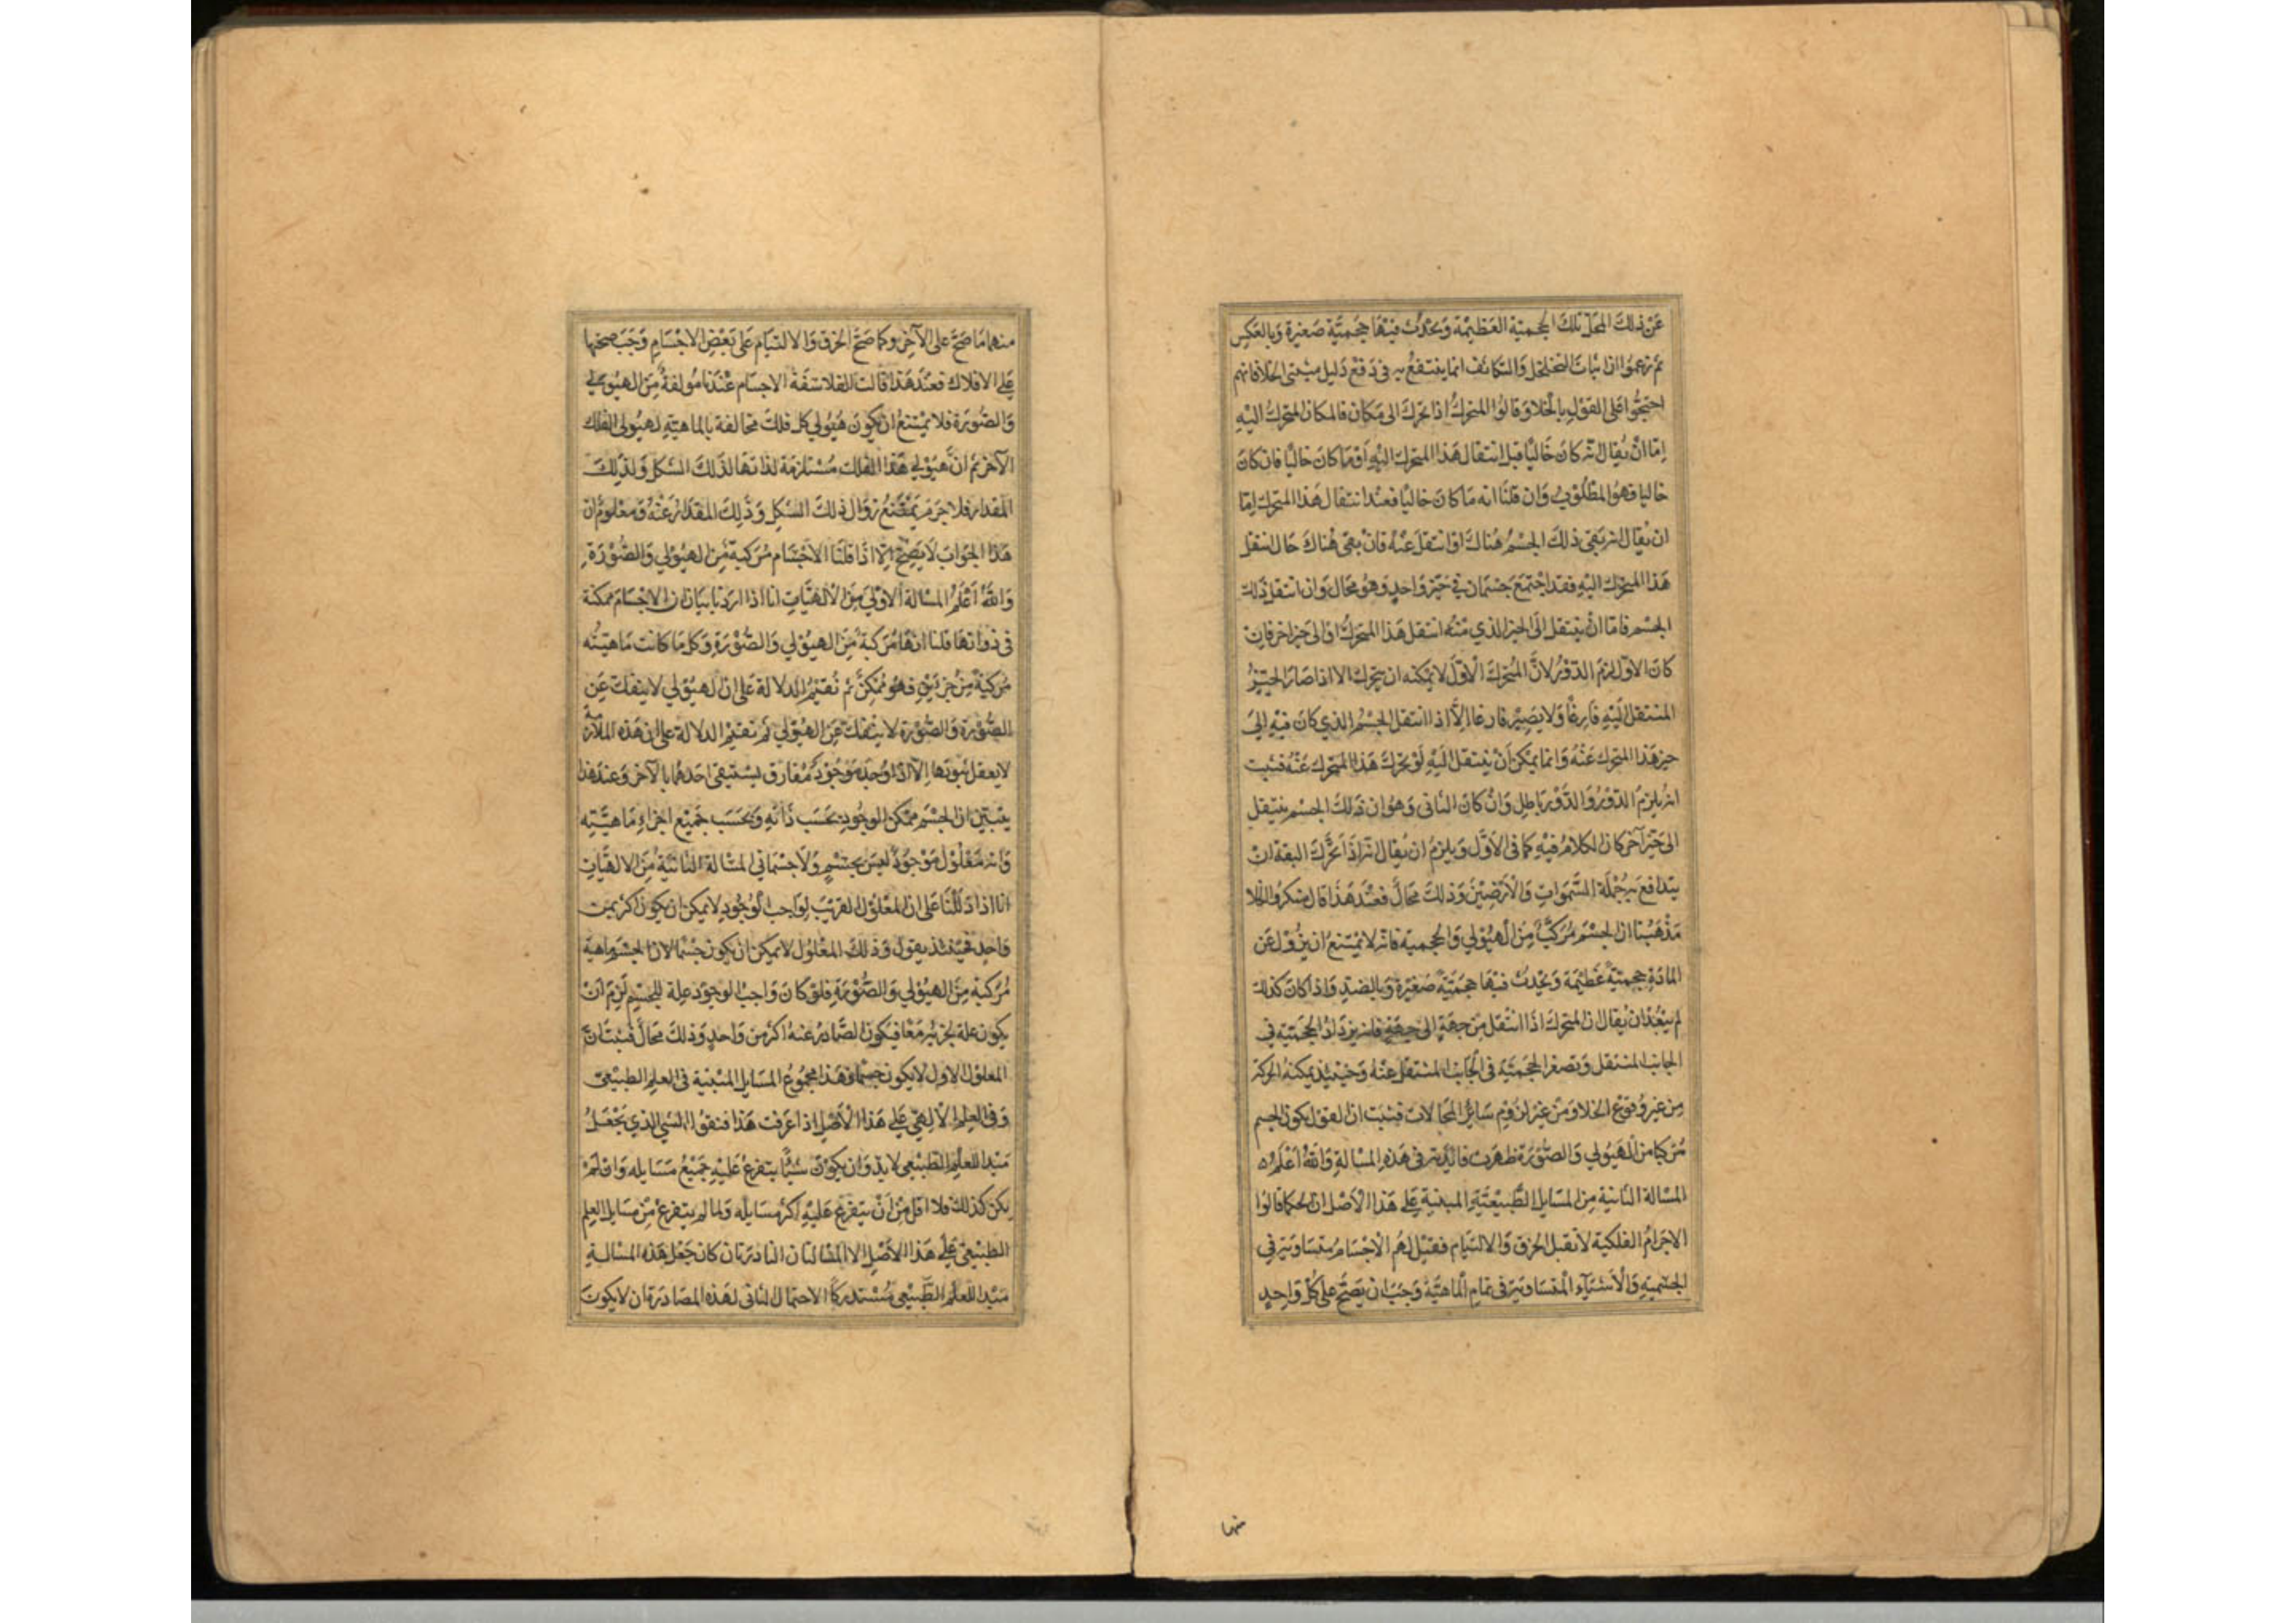 عن ذلك المحل تلك الحجمية العظيمة ويحدث فيها حجمية صغيرة وبالعكس
ثم زعموا ان اثبات التخلخل والتكاثف انما ينتفع به في دفع دليل مثبتي الخلا فانهم
احتجوا على القول بالخلا وقالوا المتحرك اذا تحرك الى مكان فالمكان المتحرك اليه
اما ان يقال انه كان خاليا قبل انتقال هذا المتحرك اليه او ما كان خاليا فان كان
خاليا فهو المطلوب وان قلنا انه ما كان خاليا فعند انتقال هذا المتحرك اما
ان يقال انه بقى ذلك الجسم هناك او انتقل عنه فان بقى هناك حال انتقل
هذا المتحرك اليه فقد اجتمع جسمان في حيز واحد وهو محال وان انتقل ذلك
الجسم فاما ان ينتقل الى الحيز الذي منه انتقل هذا المتحرك او الى حيز اخر فان
كان الاول لزم الدور لان المتحرك الاول لا يمكنه ان يتحرك الا اذا صار الحيز
المنتقل اليه فارغا ولا يصير فارغا الا اذا انتقل الجسم الذي كان فيه الى
حيز هذا المتحرك عنه وانما يمكن ان ينتقل اليه لو تحرك هذا المتحرك عنه فثبت
انه يلزم الدور والدور باطل وان كان الثاني وهو ان ذلك الجسم ينتقل
الى حيز آخر كان الكلام فيه كما في الاول ويلزم ان يقال انه اذا تحرك البقة ان
يتدافع به جملة السموات والارضين وذلك محال فعند هذا قال منكروا الخلا
مذهبنا ان الجسم مركب من الهيولي والحجمية فانه لا يمتنع ان يزول عن
المادة حجمية عظيمة ويحدث فيها حجمية صغيرة وبالضد واذا كان كذلك
لم يبعد ان يقال ان المتحرك اذا انتقل من جهة الى جهة فانه يزداد الحجمية في
الجانب المنتقل وتصغر الحجمية في الجانب المنتقل عنه وحينئذ يمكنه الحركة
من غير وقوع الخلا ومن غير لزوم سائر المحالات فثبت ان القول بكون الجسم
مركبا من الهيولي والصورة ظهرت فائدته في هذه المسالة والله اعلم
المسالة الثانية من المسايل الطبيعية المبنية على هذا الاصل ان الحكما قالوا
الاجرام الفلكية لا تقبل الخرق والالتيام فقيل لهم الاجسام متساوية في
الجسمية والاشياء المتساوية في تمام الماهية وجب ان يصح على كل واحد
منها
منهما ما صح على الآخر وكما صح الخرق والالتيام على بعض الاجسام وجب صحتها
على الافلاك فعند هذا قالت الفلاسفة الاجسام عندنا مولفة من الهيولي
والصورة فلا يمتنع ان يكون هيولي كل فلك مخالفة بالماهية لهيولى الفلك
الآخر ثم ان هيولي هذا الفلك مستلزمة لذاتها لذلك الشكل ولذلك
المقدار فلا جرم يمتنع زوال ذلك الشكل وذلك المقدار عنه ومعلوم ان
هذا الجواب لا يصح الا اذا قلنا الاجسام مركبة من الهيولي والصورة
والله اعلم المسالة الاولى من الالهيات انا اذا اردنا بيان ان الاجسام ممكنة
في ذواتها قلنا انها مركبة من الهيولي والصورة وكل ما كانت ماهيته
مركبة من جزءين فهو ممكن ثم نقيم الدلالة على ان الهيولي لا ينفك عن
الصورة والصورة لا ينفك عن الهيولي ثم نقيم الدلالة على ان هذه الملازمة
لا يعقل ثبوتها الا اذا وجد موجود مفارق يستبقى احدهما بالآخر وعند هذا
يتبين ان الجسم ممكن الوجود بحسب ذاته وبحسب جميع اجزاء ماهيته
وانه معلول موجود ليس بجسم ولا جسماني المسالة الثانية من الالهيات
انا اذا دللنا على ان المعلول القريب لواجب الوجود لا يمكن ان يكون اكثر من
واحد فحينئذ يقول وذلك المعلول لا يمكن ان يكون جسما لان الجسم ماهية
مركبة من الهيولي والصورة فلو كان واجب الوجود علة للجسم لزم ان
يكون علة لجزئيه معا فيكون الصادر عنه اكثر من واحد وذلك محال فثبت ان
المعلول الاول لا يكون جسما فهذا مجموع المسايل المبنية في العلم الطبيعي
وفي العلم الالهي على هذا الاصل اذا عرفت هذا فنقول الشي الذي يجعل
مبدا للعلم الطبيعي لابد وان يكون شيئا يتفرع عليه جميع مسايله وان لم
يكن كذلك فلا اقل من ان يتفرع عليه اكثر مسايله ولما لم يتفرع من مسايل العلم
الطبيعي على هذا الاصل الا المسالتان النادرتان كان جعل هذه المسالة
مبدا للعلم الطبيعي مستدركا الاحتمال الثاني لهذه المصادرة ان لا يكون